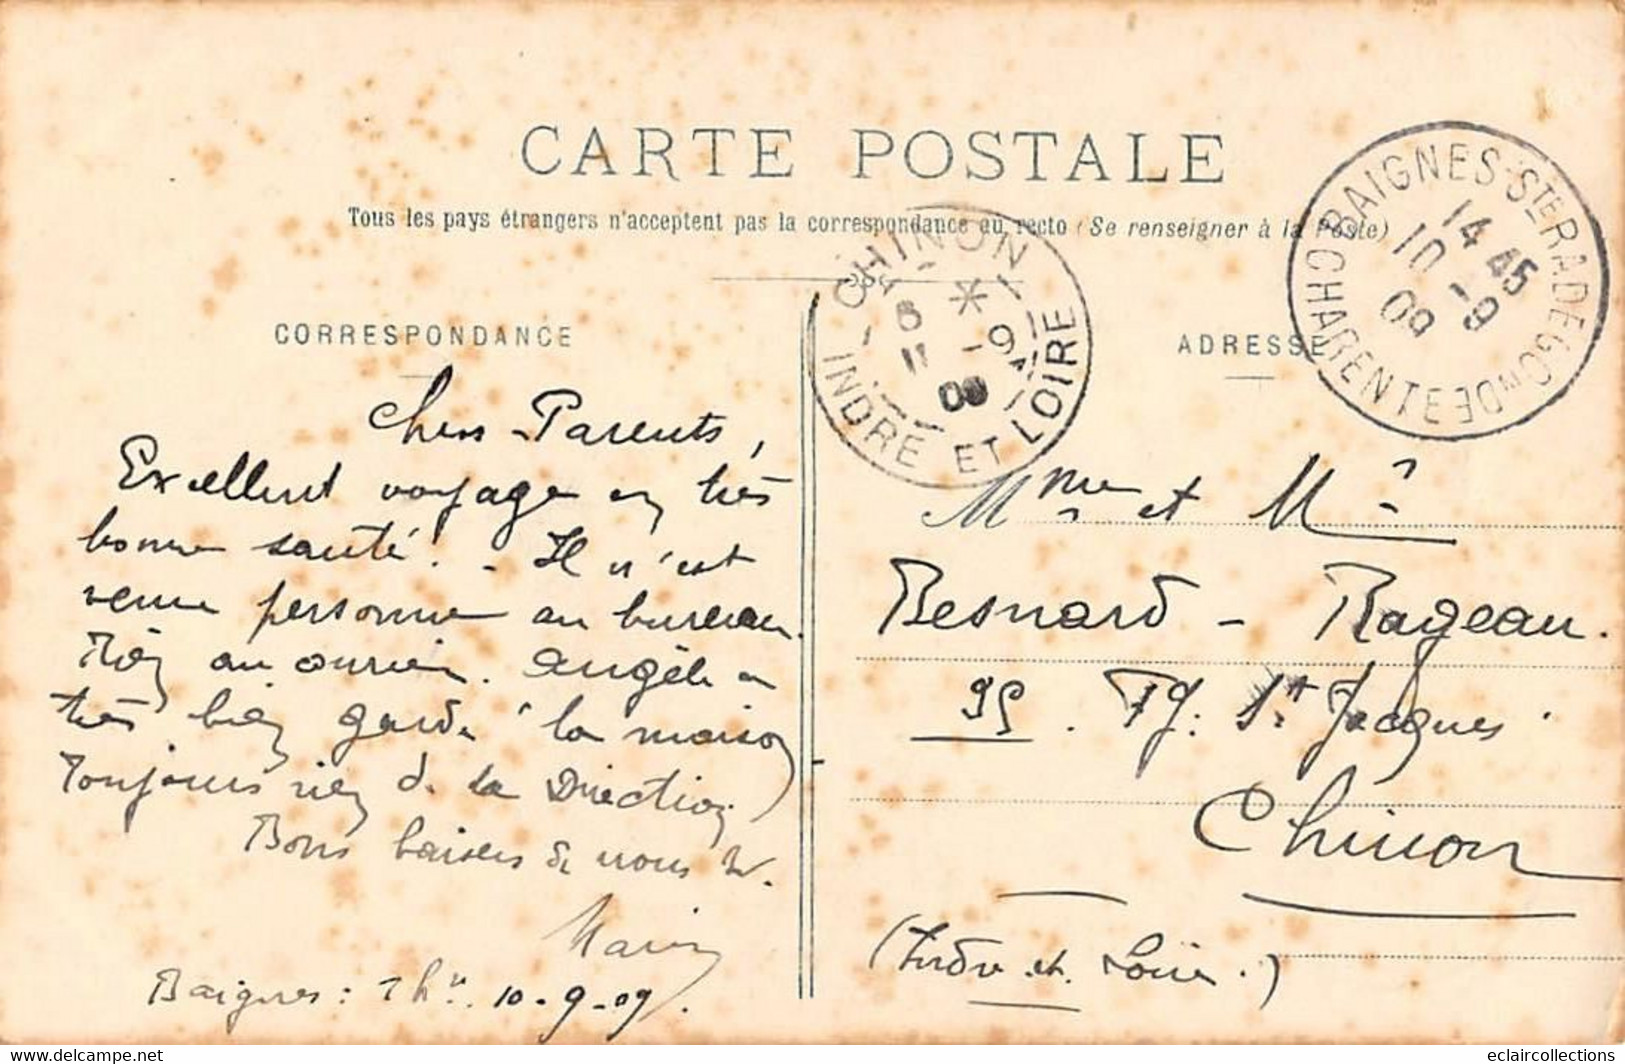 CARTE POSTALE
Tous les pays étrangers n'acceptent pas la correspondance au recto (Se renseigner à la Poste)
CORRESPONDANCE
ADRESSE
CHINON
INDRE ET LOIRE
8
11 - 9
09
BAIGNES-STE RADEGONDE
CHARENTE
14 45
10 - 9
09
Chers Parents,
Excellent voyage en très
bonne santé. - Il n'est
venu personne au bureau.
Rien au courrier. Angèle a
très bien gardé la maison
Toujours rien de la Direction
Bons baisers de nous
Baignes : 10-9-09.
Mme et Mr
Besnard - Rageau.
95. Fg. St Jacques.
Chinon
(Indre et Loire.)
eclaircollections
www.delcampe.net